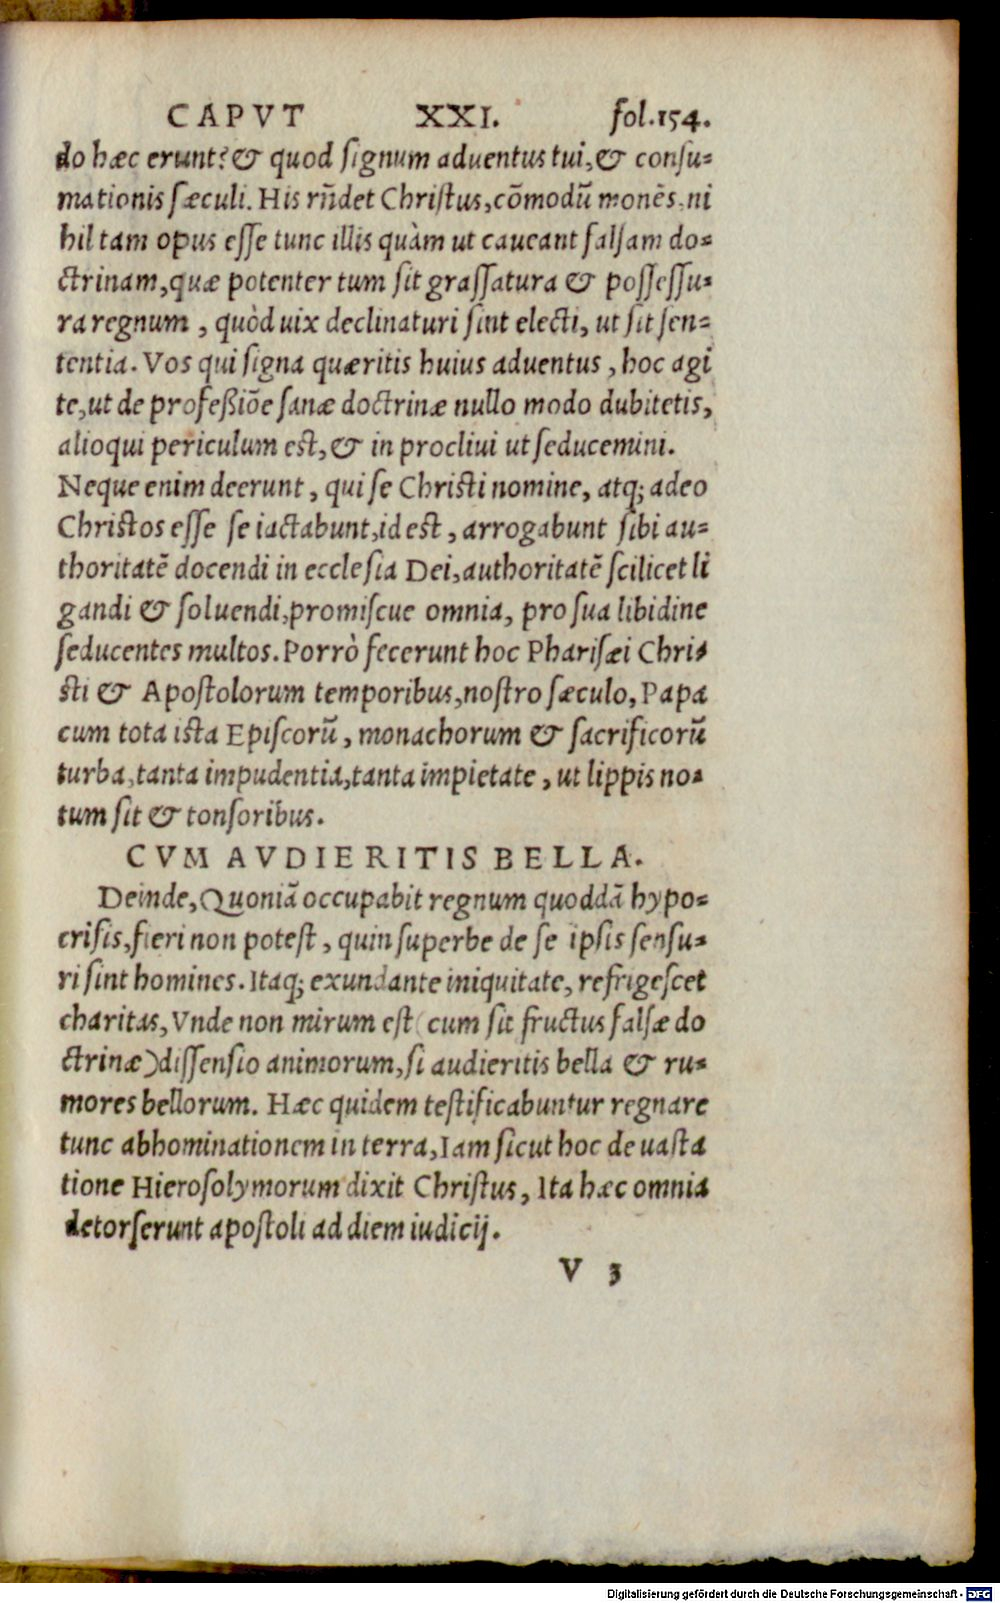 CAPVT XXI. fol.154.
do hæc erunt? & quod signum aduentus tui, & consu-
mationis sæculi. His rñdet Christus, cōmodū monēs, ni
hil tam opus esse tunc illis quàm ut caueant falsam do-
ctrinam, quæ potenter tum sit grassatura & possessu-
ra regnum, quòd uix declinaturi sint electi, ut sit sen-
tentia. Vos qui signa quæritis huius aduentus, hoc agi
te, ut de profeßiōe sanæ doctrinæ nullo modo dubitetis,
alioqui periculum est, & in procliui ut seducemini.
Neque enim deerunt, qui se Christi nomine, atq; adeo
Christos esse se iactabunt, id est, arrogabunt sibi au-
thoritatē docendi in ecclesia Dei, authoritatē scilicet li
gandi & soluendi, promiscue omnia, pro sua libidine
seducentes multos. Porrò fecerunt hoc Pharisæi Chri-
sti & Apostolorum temporibus, nostro sæculo, Papa
cum tota ista Episcorū, monachorum & sacrificorū
turba, tanta impudentia, tanta impietate, ut lippis no-
tum sit & tonsoribus.
CVM AVDIERITIS BELLA.
Deinde, Quoniā occupabit regnum quoddā hypo-
crisis, fieri non potest, quin superbe de se ipsis sensu-
ri sint homines. Itaq; exundante iniquitate, refrigescet
charitas, Vnde non mirum est (cum sit fructus falsæ do
ctrinæ) dissensio animorum, si audieritis bella & ru-
mores bellorum. Hæc quidem testificabuntur regnare
tunc abhominationem in terra, Iam sicut hoc de uasta
tione Hierosolymorum dixit Christus, Ita hæc omnia
detorserunt apostoli ad diem iudicij.
V 3
Digitalisierung gefördert durch die Deutsche Forschungsgemeinschaft - DFG